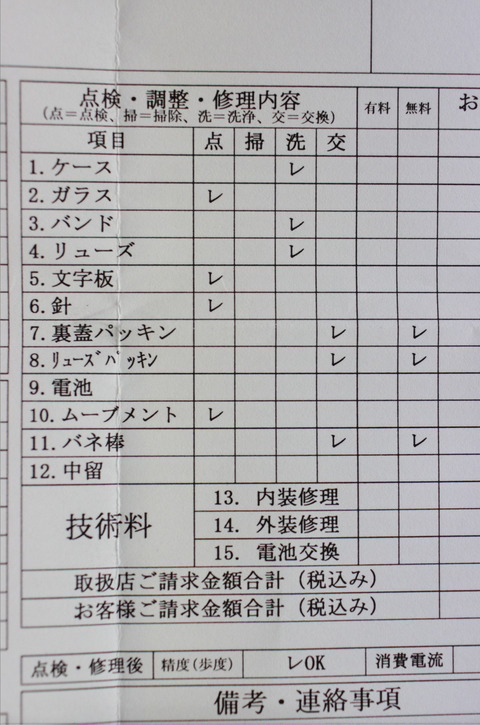 点検・調整・修理内容
(点=点検、掃=掃除、洗=洗浄、交=交換)
有料 無料 お
項目 点 掃 洗 交
1. ケース レ
2. ガラス レ
3. バンド レ
4. リューズ レ
5. 文字板 レ
6. 針 レ
7. 裏蓋パッキン レ レ
8. ﾘｭｰｽﾞﾊﾟｯｷﾝ レ レ
9. 電池
10. ムーブメント レ
11. バネ棒 レ レ
12. 中留
技術料
13. 内装修理
14. 外装修理
15. 電池交換
取扱店ご請求金額合計(税込み)
お客様ご請求金額合計(税込み)
点検・修理後 精度(歩度) レOK 消費電流
備考・連絡事項